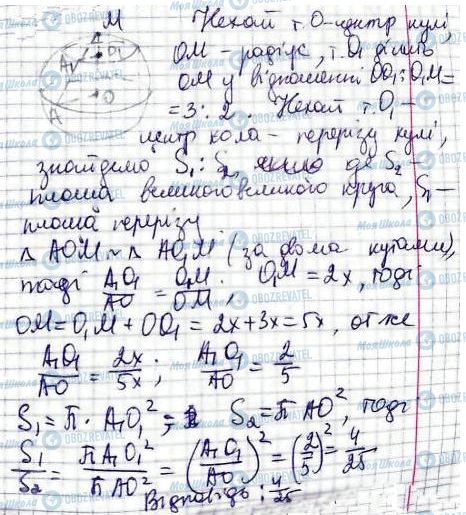 M
Нехай т. O-центр кулі,
OM - радіус, т. O₁ ділить
OM у відношенні OO₁:O₁M=
=3:2 Нехай т. O₁ -
центр кола - перерізу кулі,
знайдемо S₁:S₂, де S₂ -
площа великого великого круга, S₁ -
площа перерізу
Δ AOM ~ Δ A₁O₁M (за двома кутами),
тоді A₁O₁/AO = O₁M/OM, O₁M = 2x, тоді
OM = O₁M + OO₁ = 2x + 3x = 5x, отже
A₁O₁/AO = 2x/5x; A₁O₁/AO = 2/5
S₁ = П · A₁O₁²; S₂ = П AO², тоді
S₁/S₂ = П A₁O₁²/П AO² = (A₁O₁/AO)² = (2/5)² = 4/25
Відповідь: 4/25
A₁
O₁
O
A
Моя Школа
OBOZREVATEL